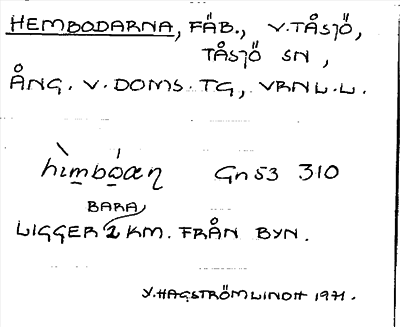 HEMBODARNA, FÄB., V. TÅSJÖ,
TÅSJÖ SN,
ÅNG. V. DOMS. TG, VRNL.L.
hìmbǫ́aɳ Gn 53 310
BARA
LIGGER 2 KM. FRÅN BYN.
Y. HAGSTRÖM LINDH 1971.